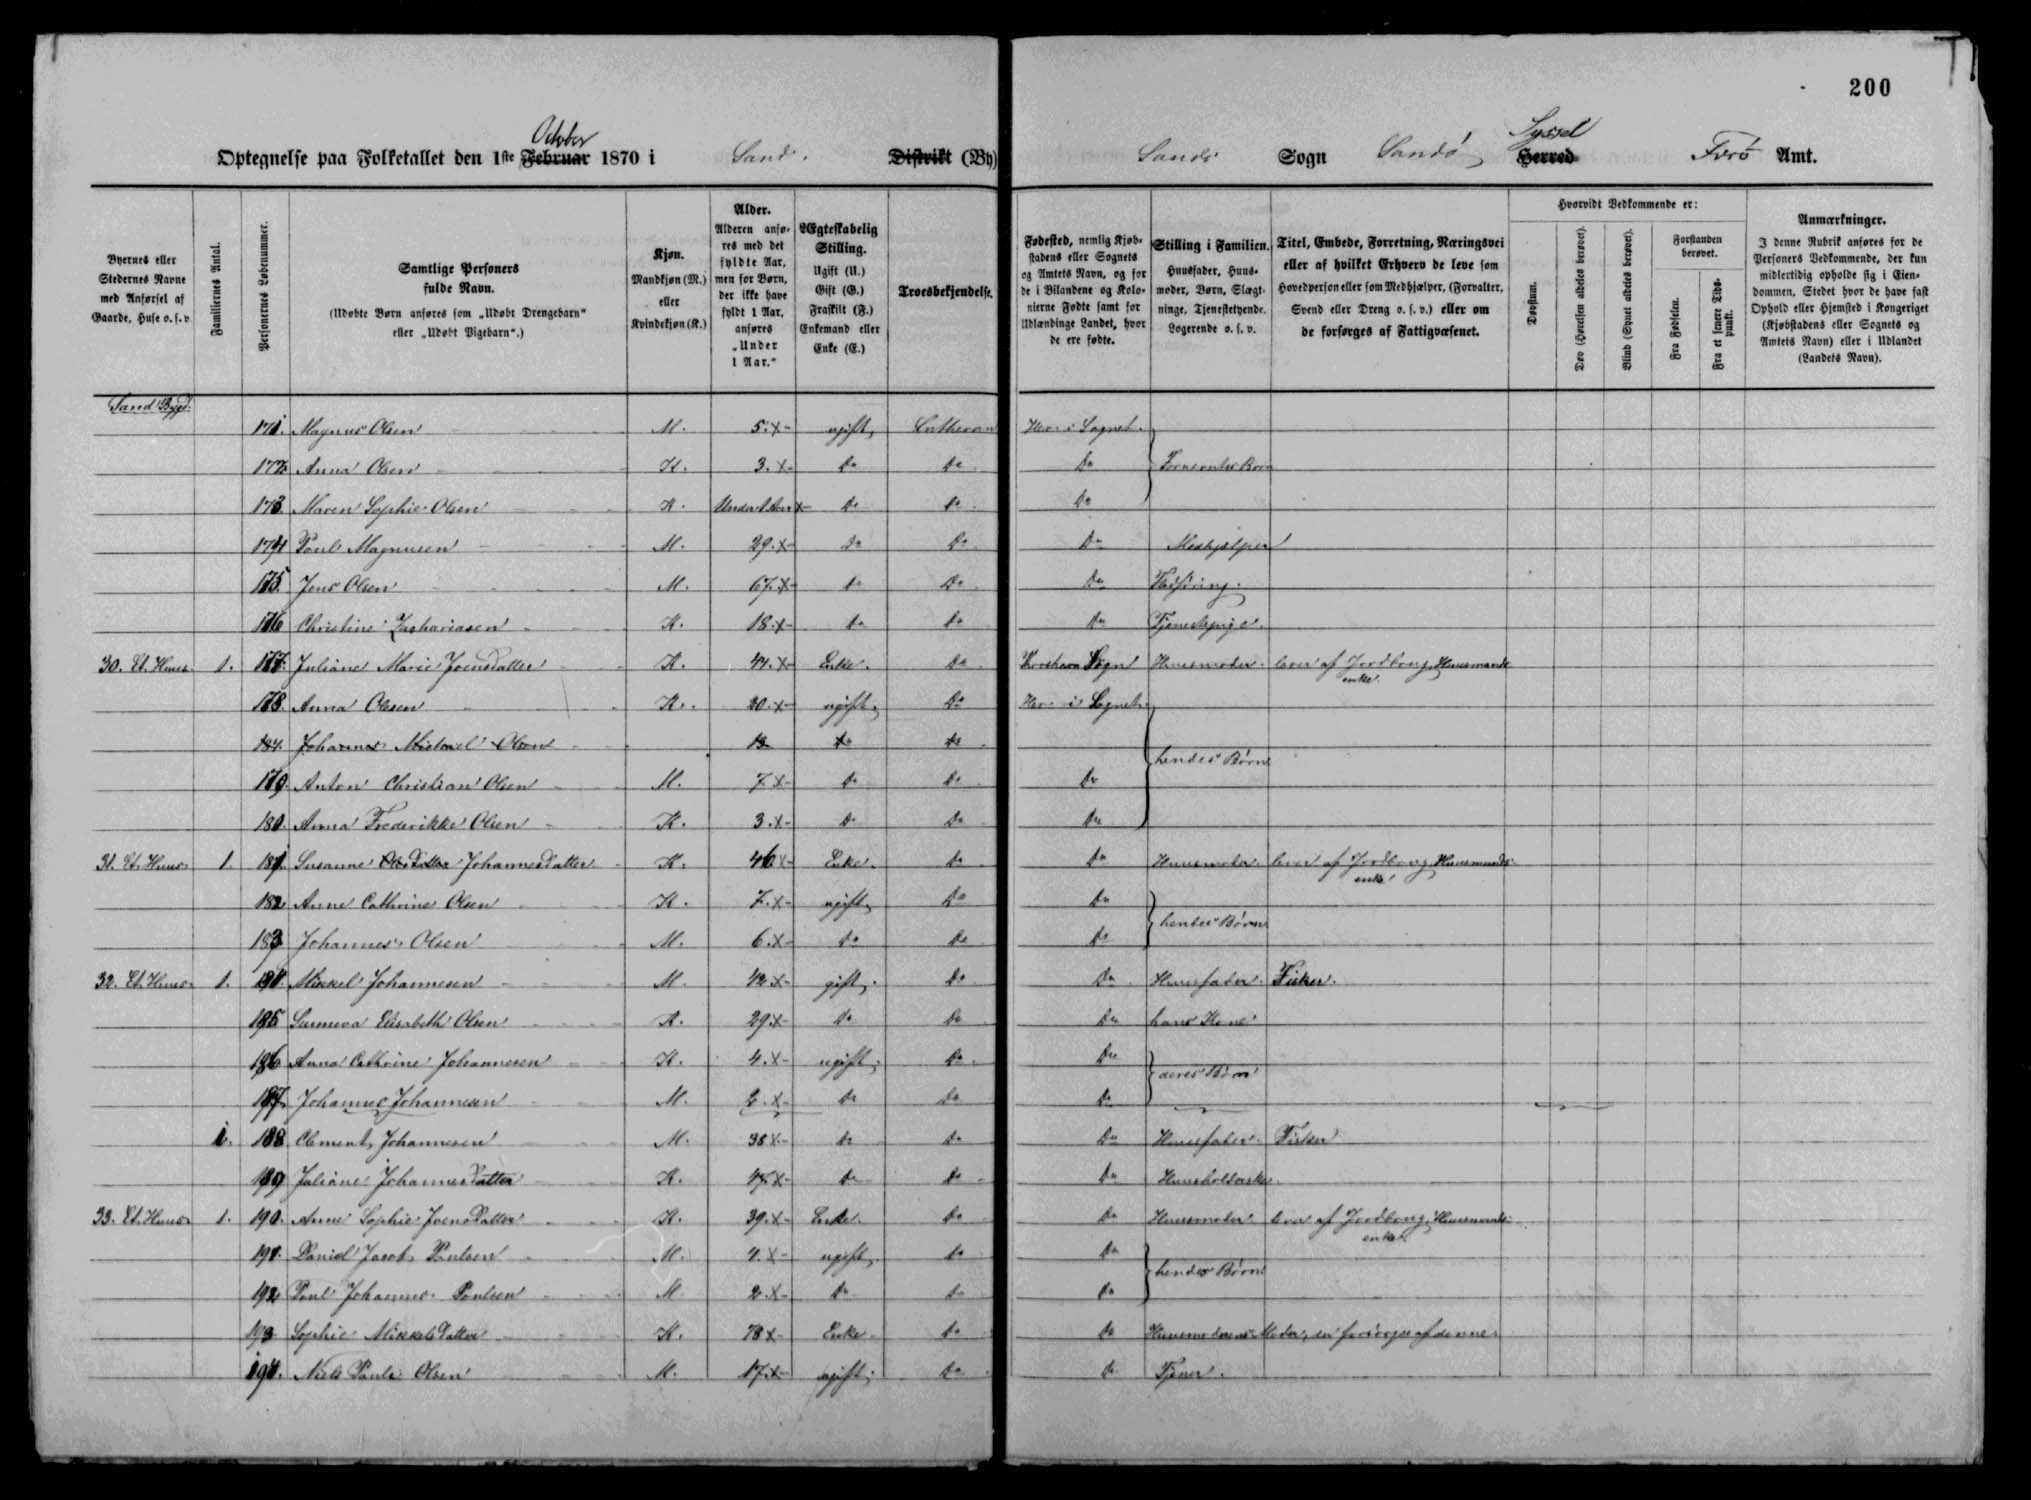 200
October
Optegnelse paa Folketallet den 1ste Februar 1870 i Sand. Distrikt (By)
Sands Sogn Sandö Syssel Herred Færö Amt.
Byernes eller Stedernes Navne med Anførsel af Gaarde, Huse o. s. v.
Familiernes Antal.
Personernes Løbenummer.
Samtlige Personers fulde Navn.
(Udøbte Børn anføres som „Udøbt Drengebarn“ eller „Udøbt Pigebarn“.)
Kjøn.
Mandkjøn (M.) eller Kvindekjøn (K.)
Alder.
Alderen anføres med det fyldte Aar, men for Børn, der ikke have fyldt 1 Aar, anføres „Under 1 Aar.“
Ægteskabelig Stilling.
Ugift (U.) Gift (G.) Fraskilt (F.) Enkemand eller Enke (E.)
Troesbekjendelse.
Fødested, nemlig Kjøbstadens eller Sognets og Amtets Navn, og for de i Bilandene og Kolonierne Fødte samt for Udlændinge Landet, hvor de ere fødte.
Stilling i Familien.
Huusfader, Huusmoder, Børn, Slægtninge, Tjenestetyende, Logerende o. s. v.
Titel, Embede, Forretning, Næringsvei eller af hvilket Erhverv de leve som Hovedperson eller som Medhjælper, (Forvalter, Svend eller Dreng o. s. v.) eller om de forsørges af Fattigvæsenet.
Hvorvidt Vedkommende er:
Døvstum.
Døv (Hørelsen aldeles berøvet).
Blind (Synet aldeles berøvet).
Forstanden berøvet.
Fra Fødselen.
Fra et senere Tidspunkt.
Anmærkninger.
I denne Rubrik anføres for de Personers Vedkommende, der kun midlertidig opholde sig i Eiendommen, Stedet hvor de have fast Ophold eller Hjemsted i Kongeriget (Kjøbstadens eller Sognets og Amtets Navn) eller i Udlandet (Landets Navn).
Sand Bygd.
171. Magnus Olsen M. 5. x ugift Lutheran Her i Sognet.
172. Anna Olsen K. 3. x Do Do Do Børn
173. Maren Sophie Olsen K. Under 1 Aar x Do Do Do
174 Poul Magnusen M. 29. x Do Do Do Medhjelper
175. Jens Olsen M. 67. x Do Do Do
176 Christine Zachariasen K. 18. x Do Do Do Tjenestepige.
30. Et Huus. 1. 177. Juliane Marie Joensdatter K. 44. x Enke. Do Thorshavn Sogn Huusmoder. lever af Jordbrug, Huusmands enke.
178. Anna Olesen K. 20. x ugift. Do Her i Sognet.
184. Johannes Michael Olsen 13 Do Do
hendes Børn
179. Anton Christian Olsen M. 7. x Do Do Do
180. Anna Frederikke Olsen K. 3. x Do Do Do
31. Et Huus. 1. 181. Susanne Olesdatter Johannesdatter K. 46 x Enke. Do Do Huusmoder. lever af Jordbrug, Huusmands enke
182 Anne Cathrine Olsen K. 7. x ugift Do Do
hendes Børn
183 Johannes Olsen M. 6. x Do Do Do
32. Et Huus. 1. 184. Mikkel Johannesen M. 42 x gift. Do Do Huusfader. Fisker.
185 Sunneva Elisabeth Olsen K. 29. x Do Do Do hans Kone
186 Anna Cathrine Johannesen K. 4. x ugift. Do Do
deres Børn
187. Johannes Johannesen M. 2. x Do Do Do
1. 188 Clement Johannesen M. 38 x Do Do Do Huusfader. Fisker
189 Juliane Johannesdatter K. 47. x Do Do Do
33. Et Huus. 1. 190. Anne Sophie Joensdatter K. 39. x Enke. Do Do Huusmoder. lever af Jordbrug, Huusmands enke.
191. Daniel Jacob Poulsen M. 4. x ugift. Do Do
hendes Børn
192 Poul Johannes Poulsen M. 2. x Do Do Do
193. Sophie Mikkelsdatter K. 78 x Enke Do Do Huusmoderens Moder, der forsørges af denne.
194. Niels Paule Olsen M. 17. x ugift. Do Do Tjener.